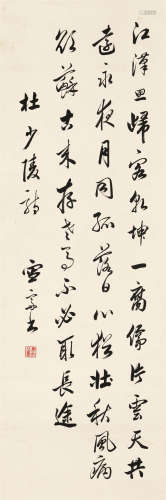 江漢思歸客乾坤一腐儒片雲天共
遠永夜月同孤落日心猶壯秋風病
欲蘇古來存老馬不必取長途
杜少陵詩 雪書